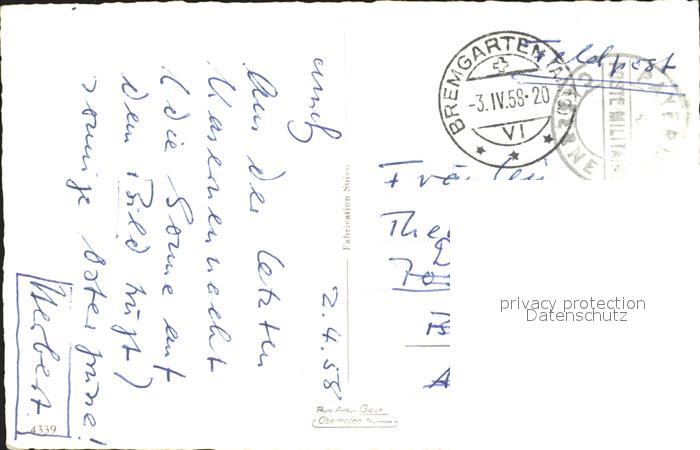 Feldpost
BREMGARTEN (AARGAU)
-3.IV.58-20
VI
POSTE MILITAIRE
Fräulein
The
privacy protection
Datenschutz
Fabrication Suisse
2.4.58
Aus der letzten
Kasernennacht
(die Sonne auf
dem Bild trügt)
sonnige Ostergrüsse!
Herbert.
4339
Photo Arthur Baur
Oberhofen